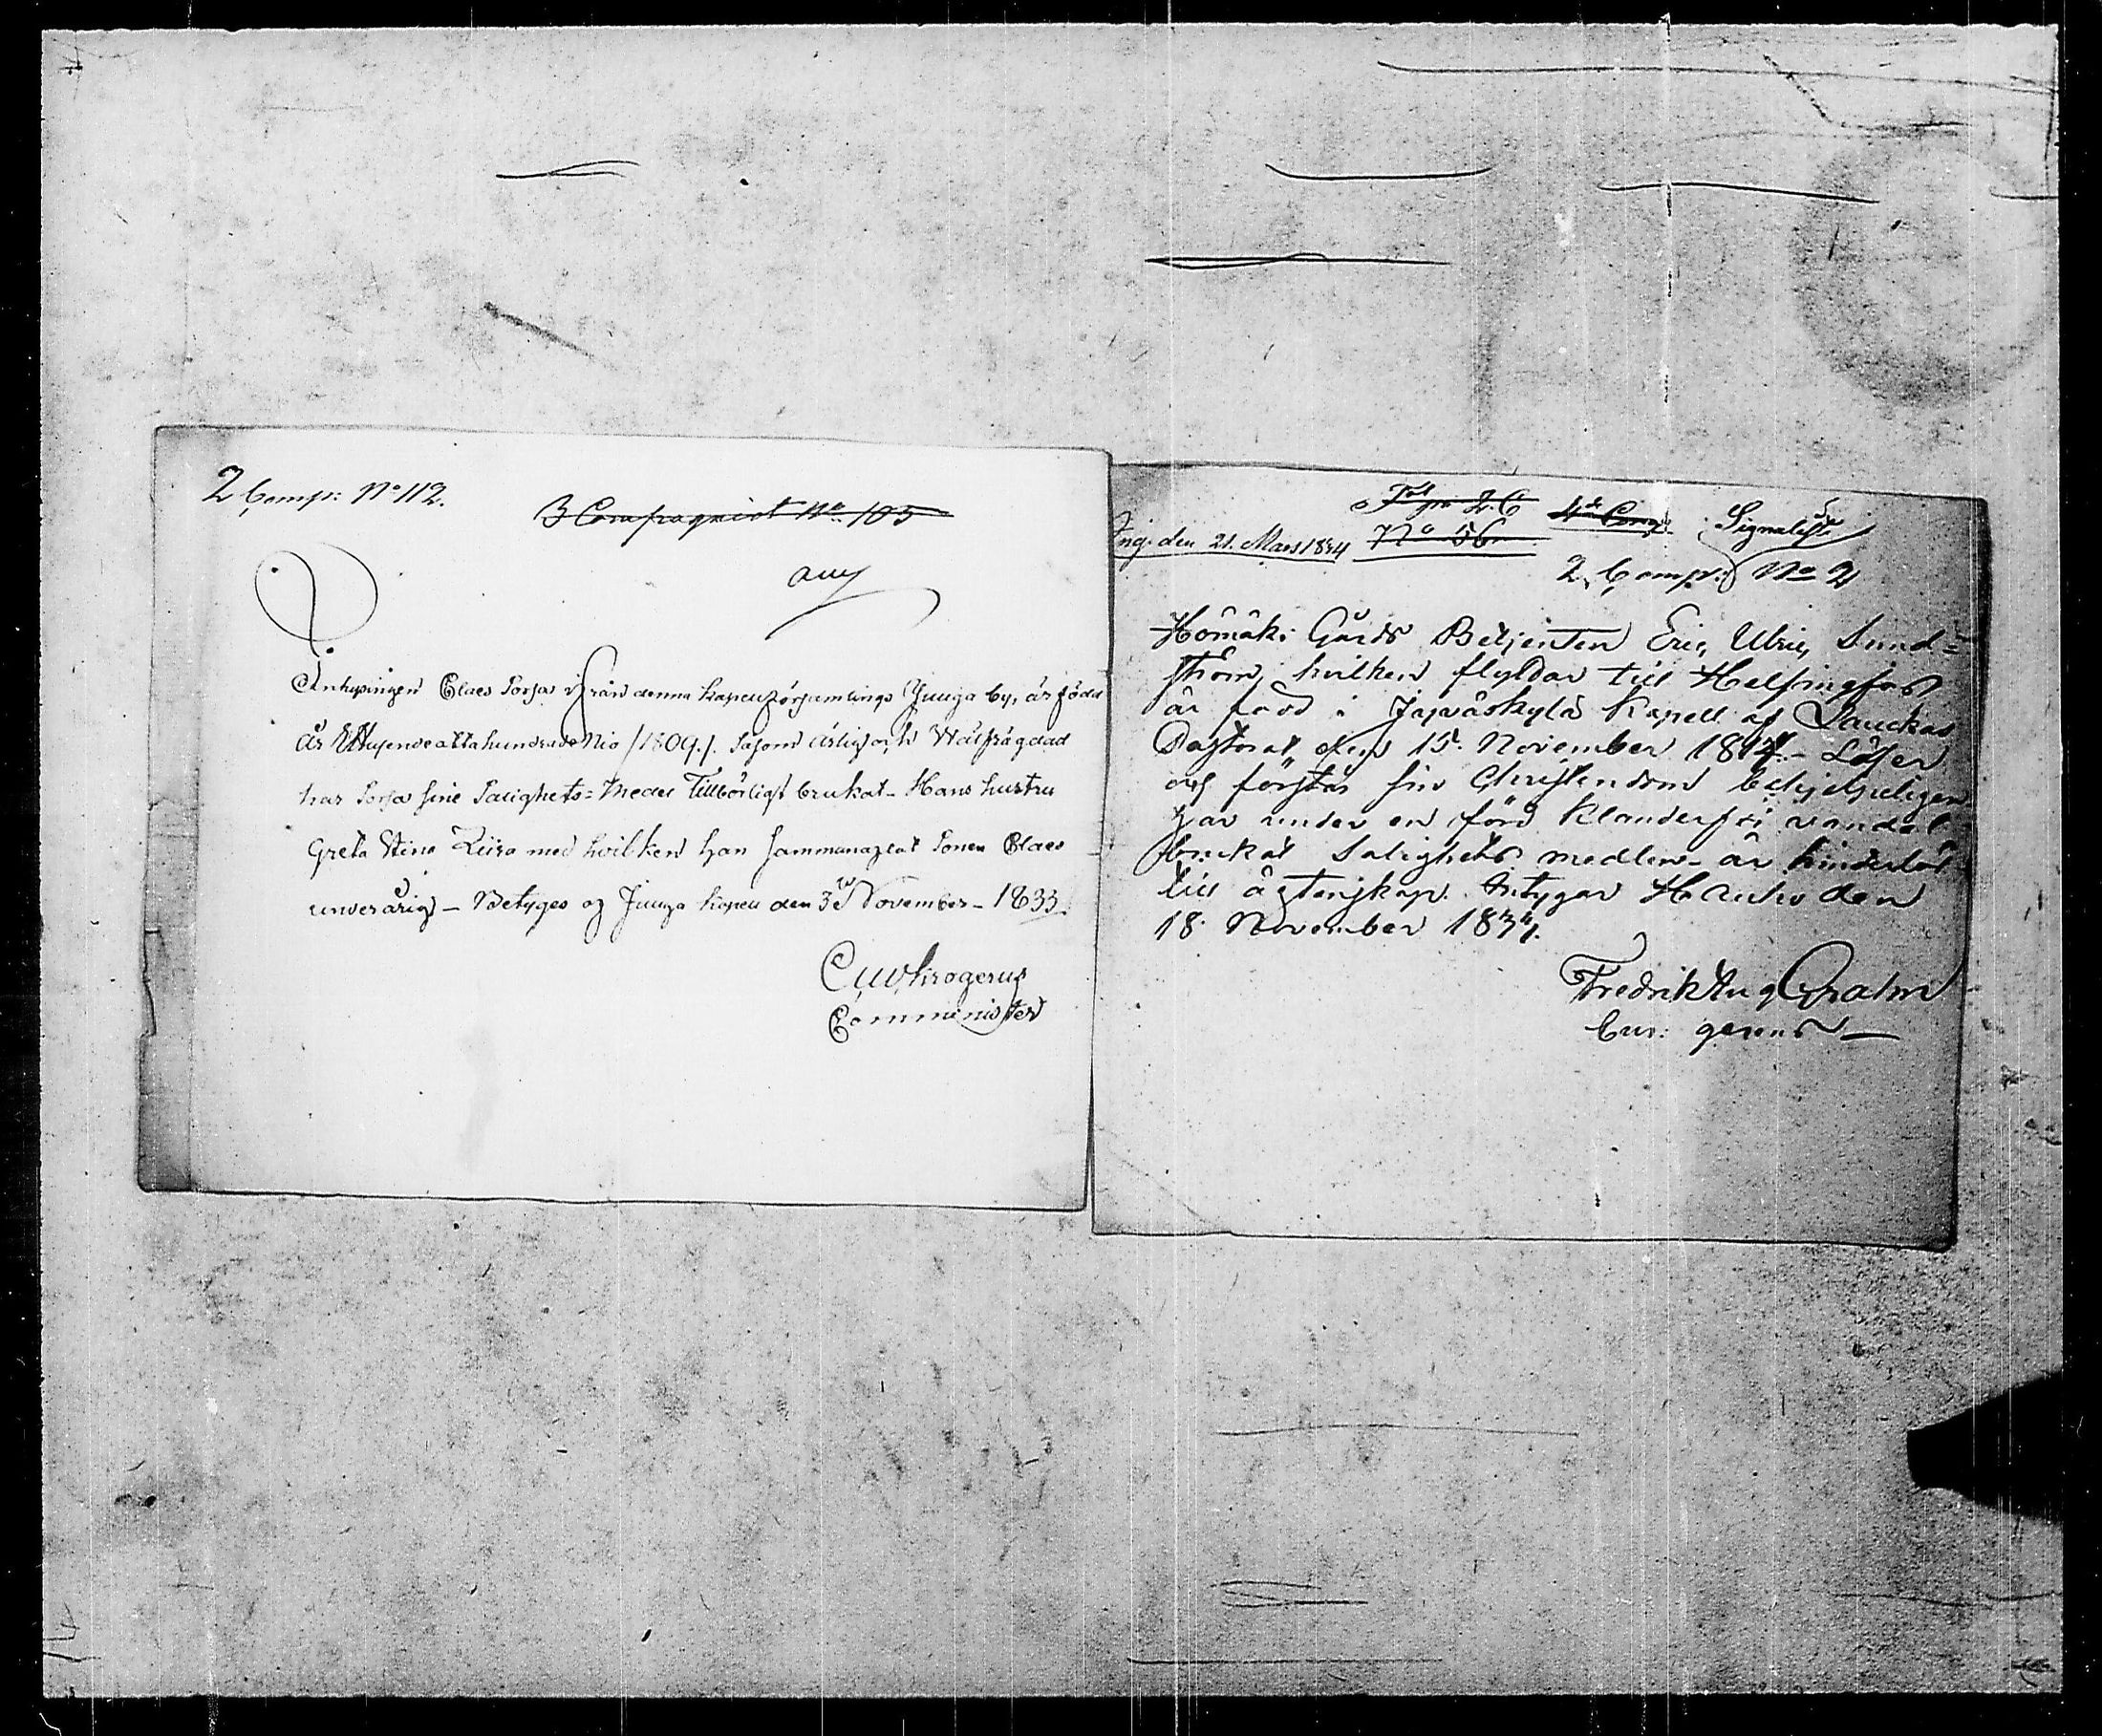 2 Comp: No 112.
3 Compagniet No 105
Inhysingen Claes Sorsa ifrån denna kapellförsamlings Juuga by, är född
År Ettusende attahundrade Nio /1809./. Såsom ärlig och Wälfrägdad
har Sorsa sine Salighets= Medel Tillbörligst brukat - Hans hustru
Greta Stina med hvilken han sammanaflat Sonen Claes
underårig - Betyges af Juuga kapell den 3de November - 1833.
Krogerus
Comminister
No 56
4de Comp. Signalist
Ing. den 21. Mars 1834
2 Comp: No 2
Gårds Betjenten Eric Ulric Sund=
ström, hvilken flyttar till Helsingfors
är född i Jyväskylä Kapell af Lauckas
Pastorat den 15. November 1814. - Läser
och förstår sin Christendom behjelpeligen
har under en förd klanderfri vandel
brukat Salighets medlen - är hinderlös
till ägtenskap. Intygar Hauho den
18. November 1834.
Fredrik Aug
Cur: gerens